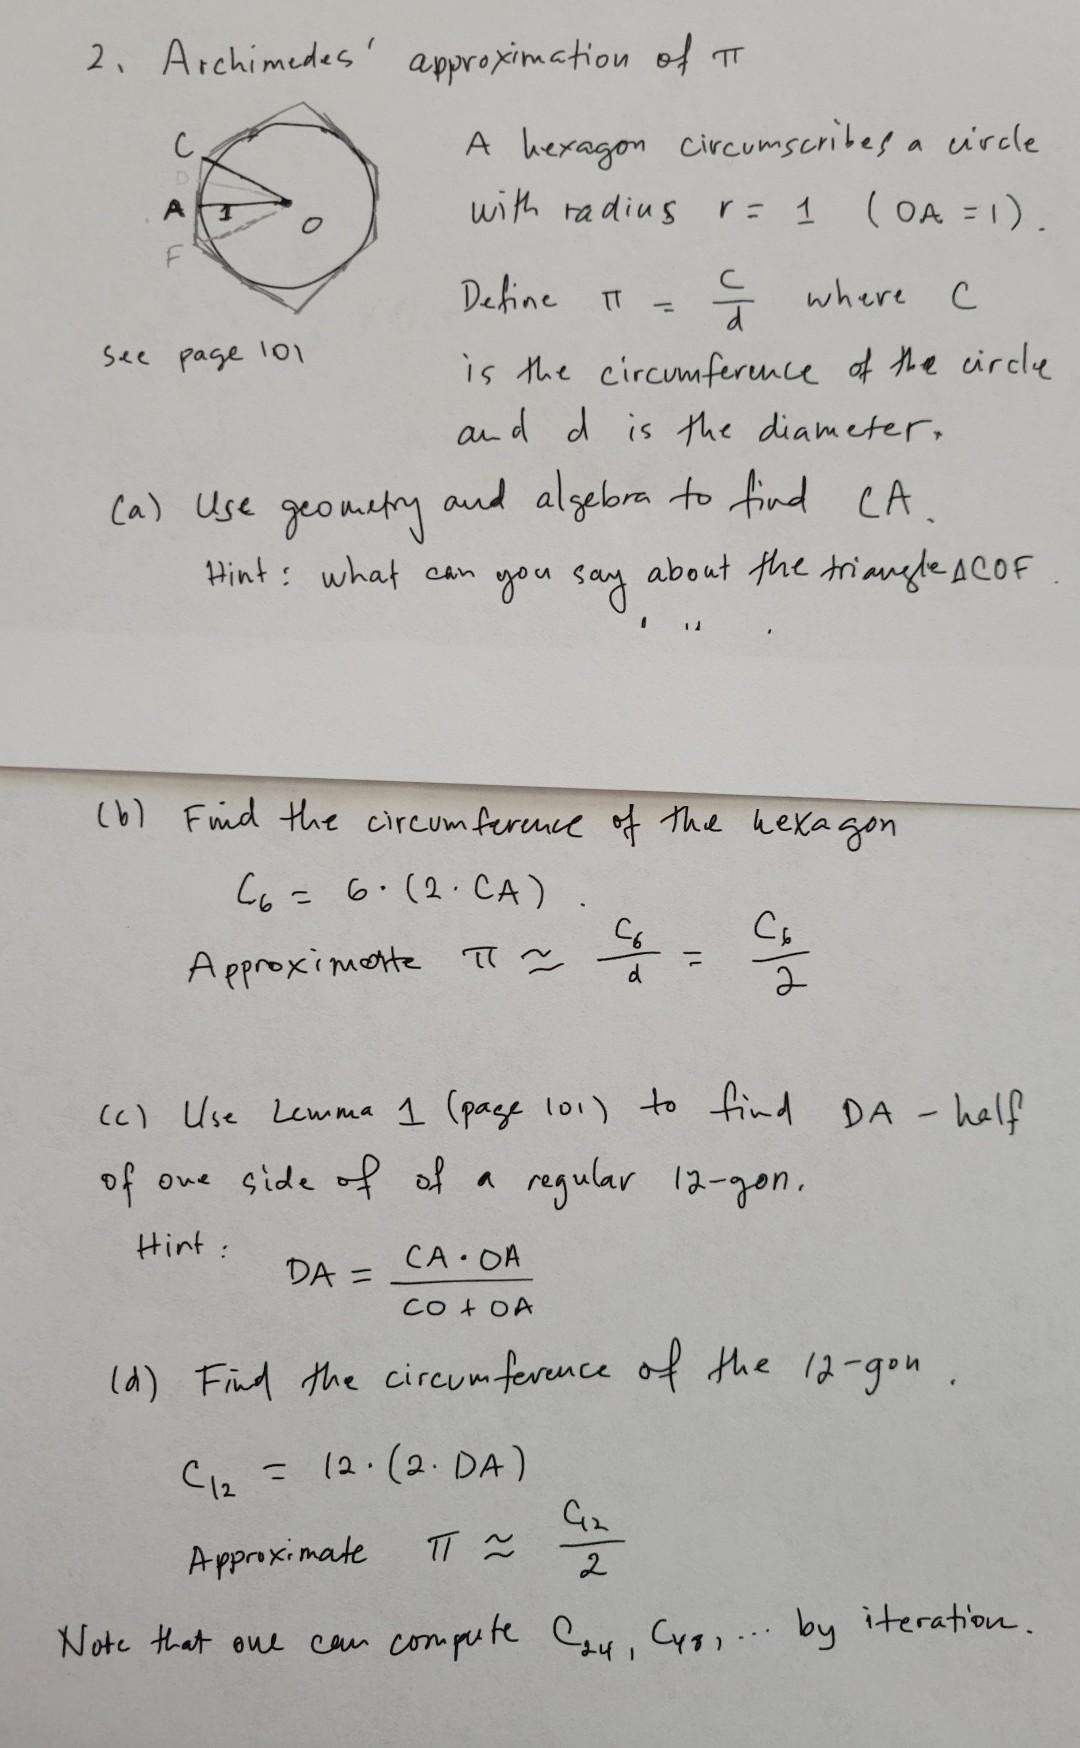 2. Archimedes' approximation of π
C
D
A
1
O
F
see page 101
A hexagon circumscribes a circle
with radius r = 1 (OA = 1).
Define π = C/d where C
is the circumference of the circle
and d is the diameter.
(a) Use geometry and algebra to find CA.
Hint : what can you say about the triangle ΔCOF.
(b) Find the circumference of the hexagon
C₆ = 6·(2·CA).
Approximate π ≈ C₆/d = C₆/2
(c) Use Lemma 1 (page 101) to find DA - half
of one side of of a regular 12-gon.
Hint : DA = CA·OA / CO + OA
(d) Find the circumference of the 12-gon.
C₁₂ = 12·(2·DA)
Approximate π ≈ C₁₂/2
Note that one can compute C₂₄, C₄₈, ... by iteration.